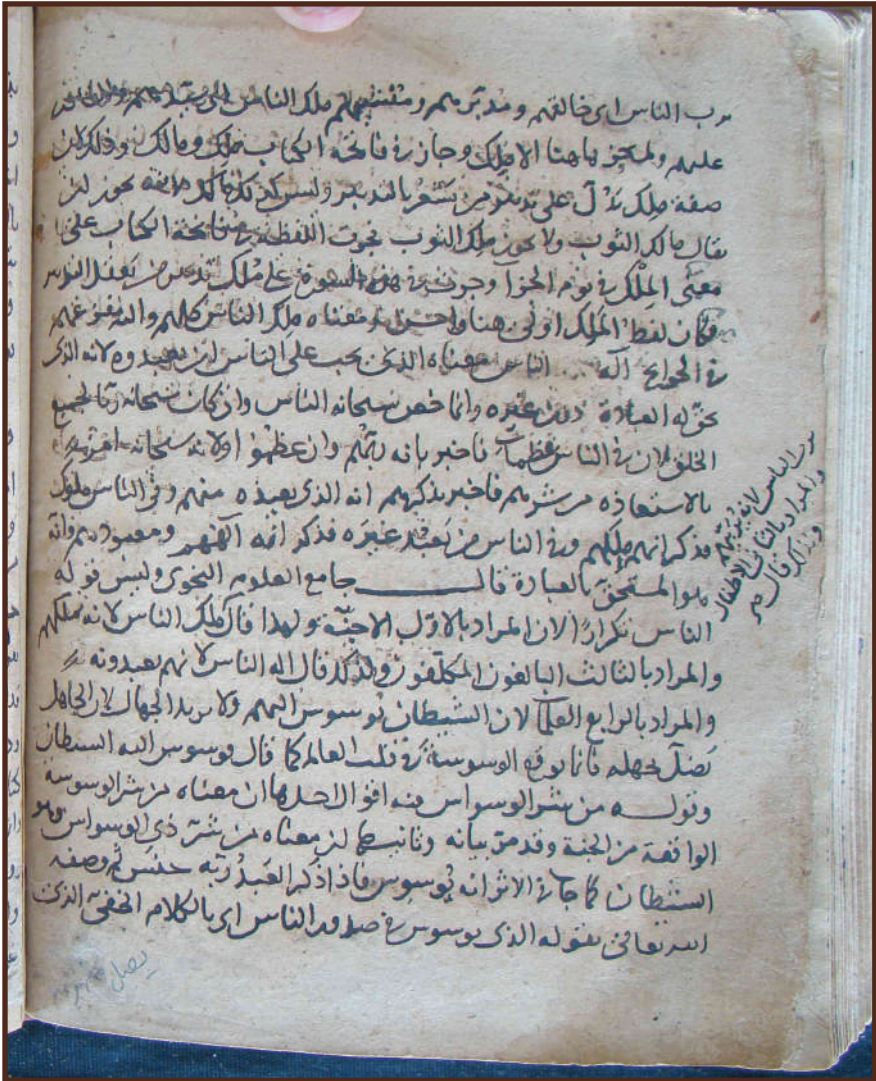 برب الناس اى خالقهم ومدبرهم ومنشيهم ملك الناس اى سيدهم والقادر
عليهم ولم يجز هاهنا الا ملك وجاز فى فاتحة الكتاب ملك ومالك وذلك لان
صفة ملك تدل على تدبير من يشعر بالتدبير وليس كذلك مالك لانه يجوز ان
يقال مالك الثوب ولا يجوز ملك الثوب فجرت اللفظة فى فاتحة الكتاب على
معنى الملك فى يوم الجزا وجرت فى هذه السورة على ملك تدبير من يعقل التدبير
فكان لفظ الملك اولى هنا واحسن ومعناه ملك الناس كلهم واليه مفزعهم
فى الحوايج اله الناس معناه الذى يجب على الناس ان يعبدوه لانه الذى
تحق له العبادة دون غيره وانما خص سبحانه الناس وان كان سبحانه ربا لجميع
الخلق لان فى الناس عظماء فاخبر بانه ربهم وان عظموا ولانه سبحانه امر
بالاستعاذه من شرهم فاخبر بذكرهم انه الذى يعيذه منهم وفى الناس ملوك
فذكر انه ملكهم وفى الناس من يعبد غيره فذكر انه الههم ومعبودهم وانه
هو المستحق بالعبادة قال جامع العلوم النحوى وليس قوله
الناس تكرارا لان المراد بالاول الاجنة ولهذا قال ملك الناس لانه يملكهم
والمراد بالثالث البالغون المكلفون ولذلك قال اله الناس لانهم يعبدونه
والمراد بالرابع العلما لان الشيطان يوسوس اليهم ولا يريد الجهال لان الجاهل
يضل بجهله فانما يوقع الوسوسة فى قلب العالم كما قال فوسوس اليه الشيطان
وقوله من شر الوسواس فيه اقوال احدها ان معناه من شر الوسوسة
الواقعة من الجنة وقد مر بيانه وثانيها ان معناه من شر ذى الوسواس وهو
الشيطان كما جا فى الاثر انه يوسوس فاذا ذكر العبد ربه خنس ثم وصفه
الله تعالى بقوله الذى يوسوس فى صدور الناس اى بالكلام الخفى الذى
برب الناس لانه يربيهم
والمراد بالثانى الاطفال
ولذلك قال